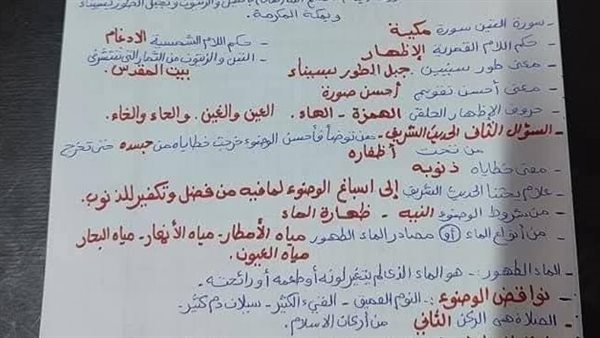 وبمكة المكرمة.
- سورة التين سورة مكية
- حكم اللام الشمسية الإدغام
- حكم اللام القمرية الإظهار
- التين والزيتون من الثمار التي تنتشر في
- معنى طور سينين. جبل الطور بسيناء
بيت المقدس.
- معنى أحسن تقويم أحسن صورة
- حروف الإظهار الحلقي الهمزة - الهاء. العين والغين. والحاء والخاء.
- السؤال الثاني الحديث الشريف - من توضأ فأحسن الوضوء خرجت خطاياه من جسده حتى تخرج
من تحت أظفاره
- معنى خطاياه ذنوبه
- علام يحثنا الحديث الشريف إلى اسباغ الوضوء لما فيه من فضل وتكفير للذنوب.
- من شروط الوضوء النيه - طهارة الماء
- من أنواع الماء (أو) مصادر الماء الطهور مياه الأمطار - مياه الأنهار - مياه البحار
مياه العيون.
- الماء الطهور:- هو الماء الذي لم يتغير لونه أو طعمه أو رائحته -
- نواقض الوضوء:- النوم العميق - القيء الكثير - سيلان دم كثير.
- الصلاة هي الركن الثاني من أركان الاسلام.